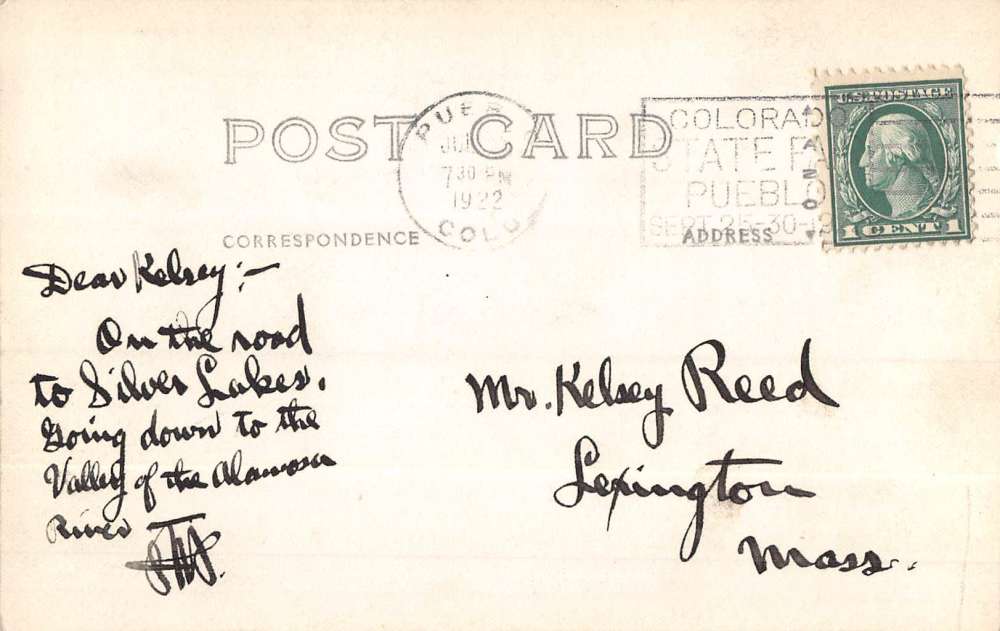 POST CARD
PUEBLO
7 30 PM
1922
COLO
COLORADO
STATE FA
PUEBLO
SEPT. 25-30-12
U.S. POSTAGE
1 CENT 1
AZO
CORRESPONDENCE
ADDRESS
Dear Kelsey:-
On the road
to Silver Lakes.
Going down to the
Valley of the Alamosa
River
Mr. Kelsey Reed
Lexington
Mass.